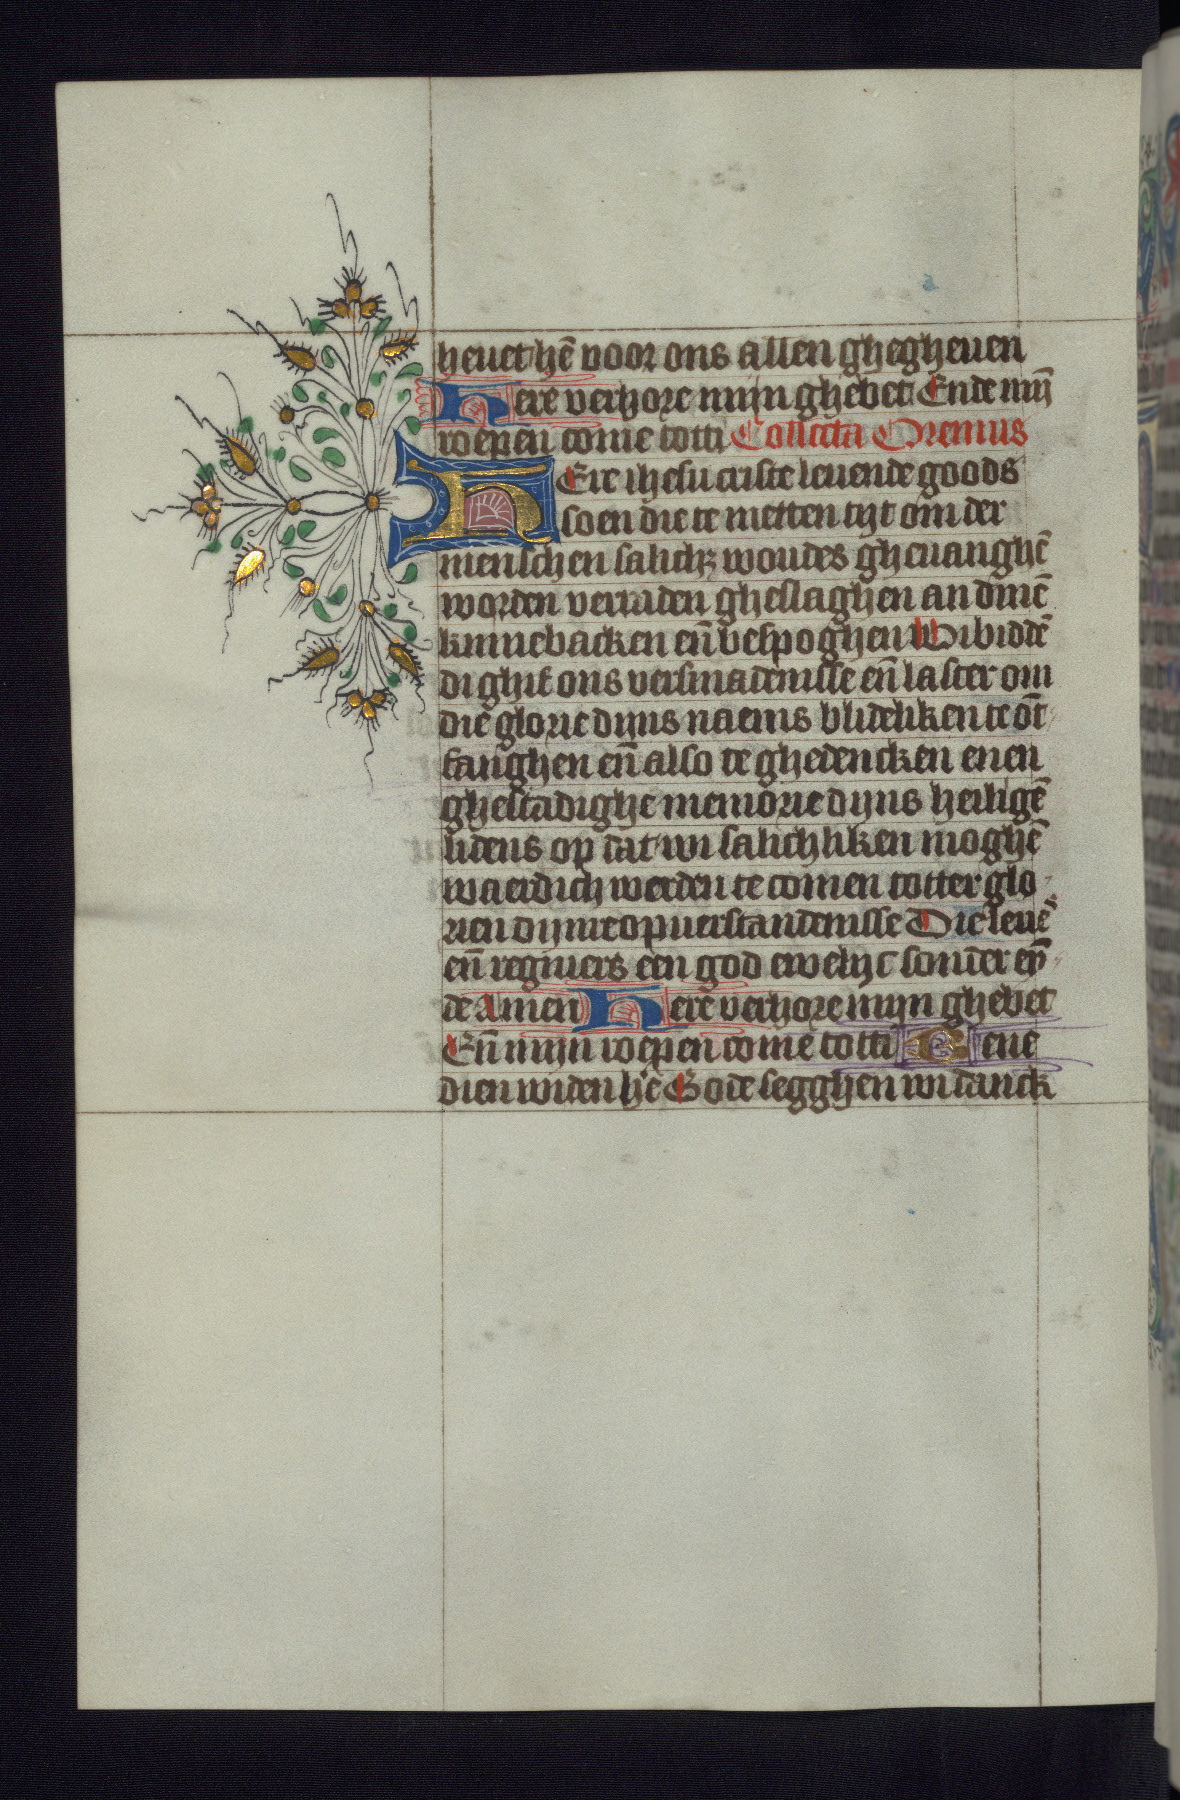 heuet hē voor ons allen ghegheuen
Here verhore mijn ghebet Ende mijn̄
roepen come totti Collecta Oremus
HEre ihesu criste leuende goods
soen die te metten tijt om der
menschen salich; woudes gheuanghē
worden verraden gheslaghen an dinē
kinnebacken en̄ bespoghen Wi biddē
di ghif ons versmadenisse en̄ laster om
die glorie dijns naems blideliken te ōt
fanghen en̄ also te ghedencken enen
ghestadighe memorie dijns heiligē
lidens op dat wi salichliken moghē
waerdich werden te comen totter glo
rien dijnre opuerstandenisse Die leue
en̄ regniers een god ewelijc sonder eȳ
de Amen Here verhore mijn ghebet
En̄ mijn roepen come totti Bene
dien wi den hēe Gode segghen wi danck